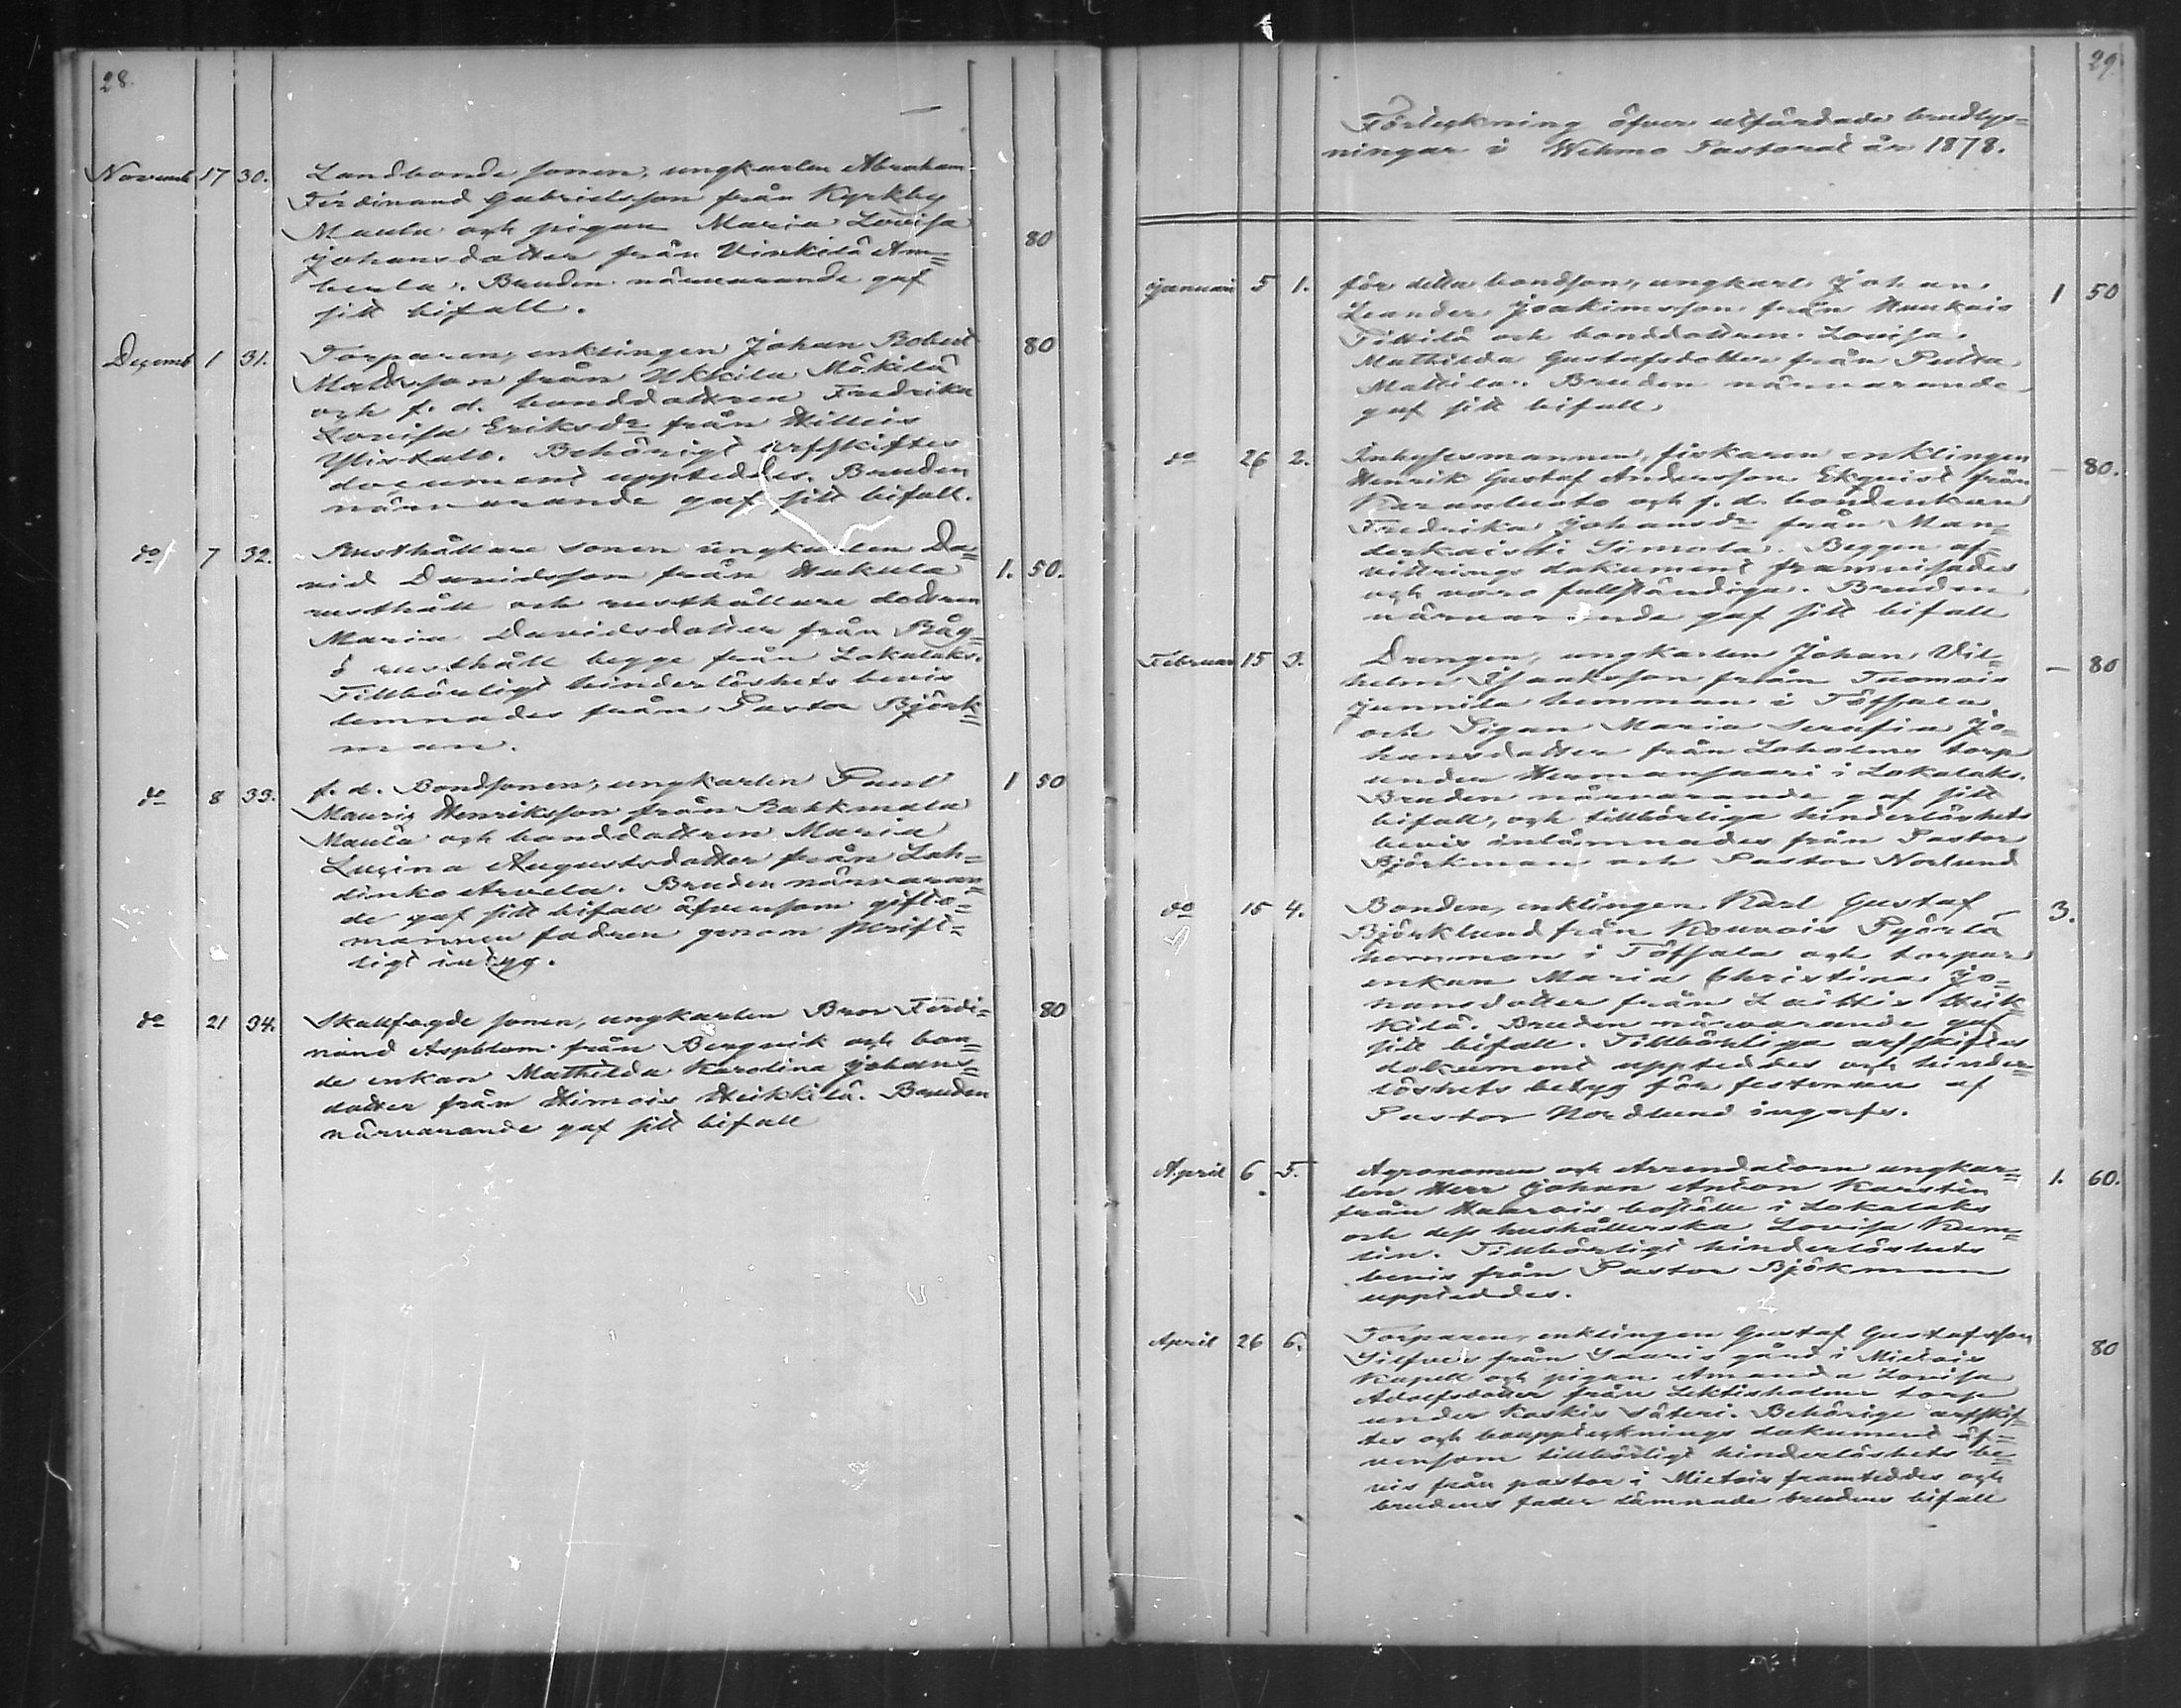 28.
Novemb 17 30. Landbonde sonen, ungkarlen Abraham
Ferdinand Gabrielsson från Kyrkby
Maula och pigan Maria Lovisa
Johansdotter från Vinkilä Am= 80
beula. Bruden närvarande gaf
sitt bifall.
Decemb 1 31. Torparen, enklingen Johan Robert 80
Mattsson från Ukkila Mäkilä
och f. d. bonddottren Fredrika
Lovisa Eriksdr från Willais
Ylistalo. Behörigt arfskiftes
document uppteddes. Bruden
närvarande gaf sitt bifall.
do 7 32. Rusthållare sonen ungkarlen Da=
vid Davidsson från Hakula 1. 50.
rusthåll och rusthållare dottren
Maria Davidsdotter från Råg=
ö rusthåll begge från Lokalaks.
Tillbörligt hinderlöshets bevis
lemnades från Pastor Björk=
man.
do 8 33. f. d. Bondsonen, ungkarlen Paul 1 50
Mauriz Henriksson från Rahkmala
Maula och bonddottren Maria
Lucina Augustsdotter från Lah=
dinko Arvela. Bruden närvaran=
de gaf sitt bifall äfvensom gifto=
mannen fadren genom skrift=
ligt intyg.
do 21 34. Skallfogde sonen, ungkarlen Bror Ferdi= 80
nand Aspblom från Bergvik och bon=
de enkan Mathilda Karolina Johans=
dotter från Himois Heikkilä. Bruden
närvarande gaf sitt bifall
29
Förteckning öfver utfärdade brudlys=
ningar i Wehmo Pastorat år 1878.
Januari 5 1. för detta bondson, ungkarl Johan 1 50
Leander Joakimsson från Haukois
Tittilä och bonddottren Lovisa
Mathilda Gustafsdotter från Putta
Mattila. Bruden närvarande
gaf sitt bifall
do 26 2. Inhysesmannen, fiskaren enklingen — 80.
Henrik Gustaf Andersson Ekqvist från
Karanluoto och f. d. bondenkan
Fredrika Johansdr från Man=
derkaisti Simola. Begges af=
vittrings dokument framvisades
och voro fullständiga. Bruden
närvarande gaf sitt bifall
Februar 15 3. Drengen, ungkarlen Johan Vil= — 80
helm Isaaksson från Tuomois
Junnila hemman i Töfsala
och Pigan Maria Serafia Jo=
hansdotter från Loholms torp
under Hermansaari i Lokalaks.
Bruden närvarande gaf sitt
bifall, och tillbörliga hinderlöshets
bevis inlämnades från Pastor
Björkman och Pastor Norlund
do 15 4. Bonden, enklingen Karl Gustaf 3.
Björklund från Kouvois Pyörlä
hemman i Töfsala och torpar
enkan Maria Christina Jo=
hansdotter från Laittis Heik
kilä. Bruden närvarande gaf
sitt bifall. Tillbörliga arfskiftes
dokument uppteddes och hinder=
löshets betyg för festeman af
Pastor Nordlund ingafs.
April 6 5. Agronomen och Arrendatorn ungkar= 1. 60.
len Herr Johan Anton Karstén
från Haarois boställe i Lokalaks
och dess hushållerska Lovisa Kum=
lin. Tillbörligt hinderlöshets
bevis från Pastor Björkman
uppteddes.
April 26 6. Torparen, enklingen Gustaf Gustafsson 80
Silfver från Saaris gård i Mietois
Kapell och pigan Amanda Lovisa
Adolfsdotter från Lektisholms torp
under Koskis säteri. Behörige arfskif=
tes och bouppteknings dokument äf=
vensom tillbörligt hinderlöshets be=
vis från pastor i Mietois framteddes och
brudens fader lämnade brudens bifall